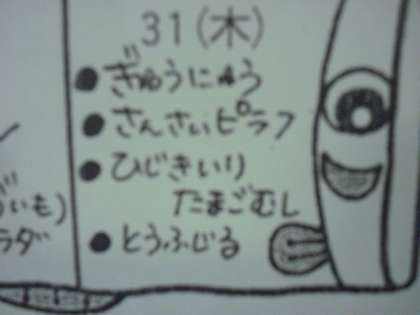 31(木)
●ぎゅうにゅう
●さんさいピラフ
●ひじきいり
たまごむし
●とうふじる
いも)
ラダ